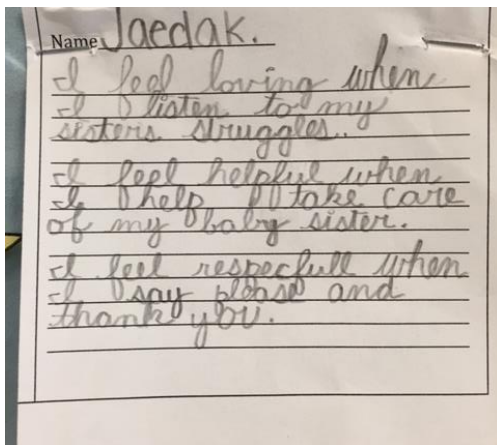 Name Jaedak.
I feel loving when
I listen to my
sisters struggles.
I feel helpful when
I help take care
of my baby sister.
I feel respecfull when
I say please and
thank you.